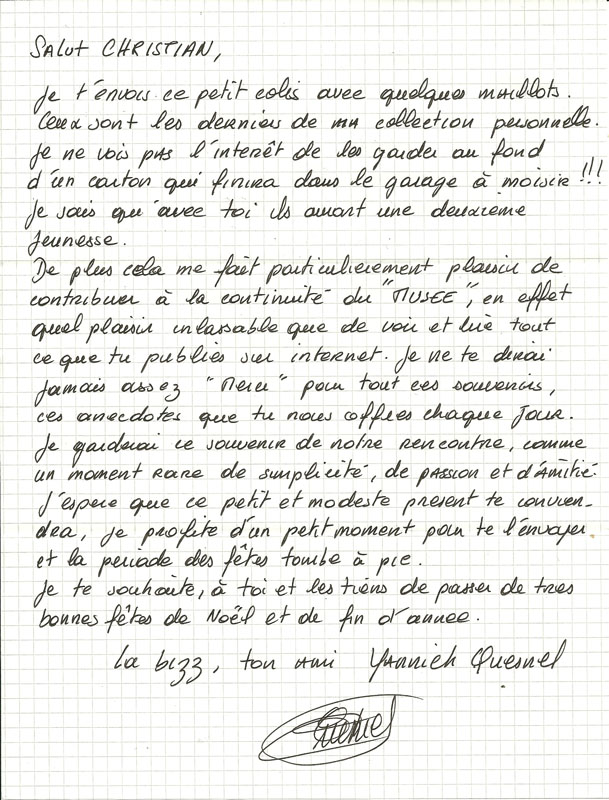 Salut CHRISTIAN,
Je t'envois ce petit colis avec quelques maillots.
Ceux sont les derniers de ma collection personnelle.
Je ne vois pas l'interêt de les garder au fond
d'un carton qui finira dans le garage à moisir !!!
Je sais qu'avec toi ils auront une deuxieme
jeunesse.
De plus cela me fait particulierement plaisir de
contribuer à la continuité du "MUSEE", en effet
quel plaisir inlassable que de voir et lire tout
ce que tu publies sur internet. Je ne te dirai
jamais assez "Merci" pour tout ces souvenirs,
ces anecdotes que tu nous offres chaque jour.
Je garderai ce souvenir de notre rencontre, comme
un moment rare de simplicité, de passion et d'Amitié.
J'espere que ce petit et modeste present te convien-
dra, je profite d'un petit moment pour te l'envoyer
et la periode des fêtes tombe à pic.
Je te souhaite, à toi et les tiens de passer de tres
bonnes fêtes de Noël et de fin d'annee.
La bizz, ton ami Yannick Quesnel
Quesnel